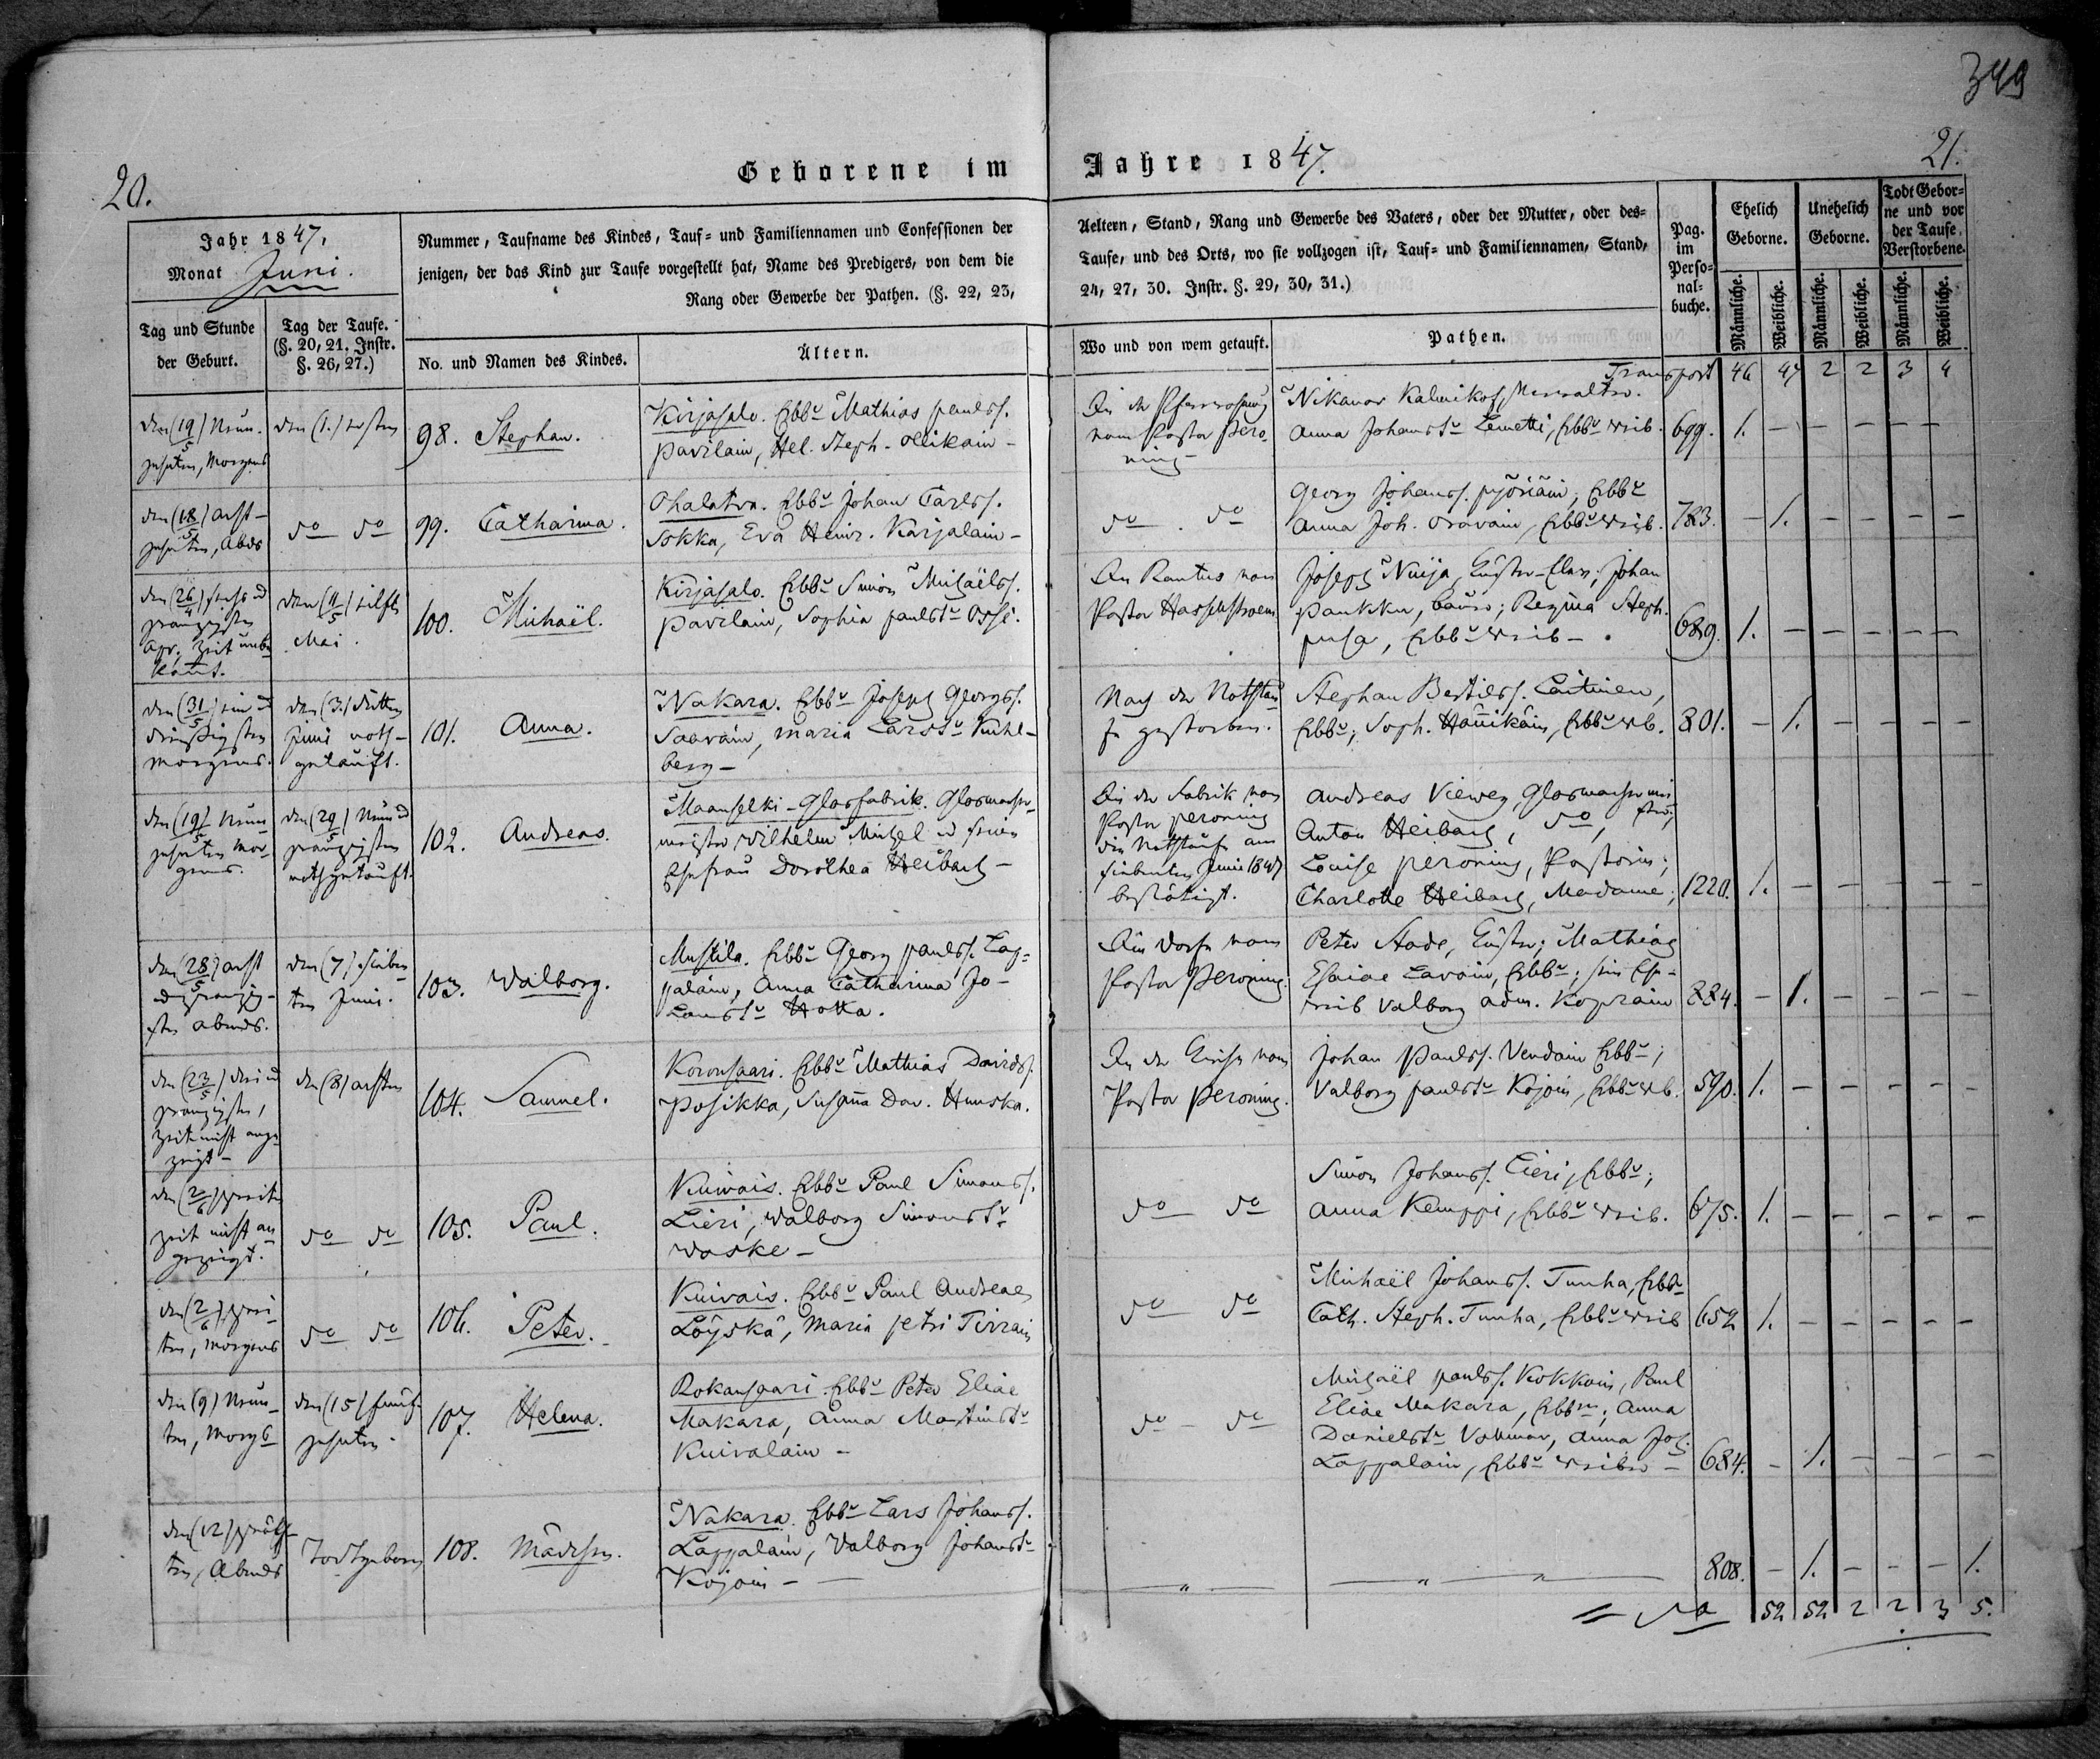 349
20.
21.
Geborene im Jahre 1847.
Jahr 1847.
Monat Juni.
Tag und Stunde
der Geburt.
Tag der Taufe.
(§. 20, 21. Instr.
§. 26, 27.)
Nummer, Taufname des Kindes, Tauf- und Familiennamen und Confessionen der
jenigen, der das Kind zur Taufe vorgestellt hat, Name des Predigers, von dem die
Rang oder Gewerbe der Pathen. (§. 22, 23,
No. und Namen des Kindes.
Ältern.
Aeltern, Stand, Rang und Gewerbe des Vaters, oder der Mutter, oder des-
Taufe, und des Orts, wo sie vollzogen ist, Tauf- und Familiennamen, Stand,
24, 27, 30. Instr. §. 29, 30, 31.)
Wo und von wem getauft.
Pathen.
Pag.
im
Perso-
nal-
buche.
Ehelich
Geborne.
Unehelich
Geborne.
Todt Gebor-
ne und vor
der Taufe
Verstorbene.
Männliche.
Weibliche.
Männliche.
Weibliche.
Männliche.
Weibliche.
Transport 46 47 2 2 3 4
den (19/5) neun-
zehnten, Morgens
den (1.) ersten
98. Stephan.
Kirjasalo. Ebbr Mathias Paulss.
Pavilain, Hel. Steph. Ollikain -
In der
vom Pastor Pero-
ning -
Nikanor Kalnikof,
Anna Johansdtr Lemetti, Ebbr Weib.
699. 1. - - - - -
den (18/5) acht-
zehnten, Abds
do do
99. Catharina.
Ohalatva. Ebbr Johan Carlss.
Sokka, Eva Heinr. Karjalain -
do . do
Georg Johanss. Pyöriäin, Ebbr
Anna Joh. Oravain, Ebbr Weib.
783. - 1. - - - -
den (26/4) sechs u
zwanzigsten
Apr. Zeit unbe-
kant.
den (11/5) elften
Mai.
100. Michaël.
Kirjasalo. Ebbr Simon Michaëlss.
Pavilain, Sophia Paulsdtr Ossi.
In Rantus vom
Pastor Hasselstroem
Joseph Nuija, Küster-; Johan
Paukku, Bauer; Regina Steph.
Pusa, Ebbr Weib -
689. 1. - - - - -
den (31/5) ein u
dreißigsten
morgens.
den (3.) dritten
Juni noth-
getauft.
101. Anna.
Nakara. Ebbr Joseph Georgss.
Saavain, Maria Larsdtr Kuhl-
berg -
Nach der Nothtau-
fe gestorben.
Stephan Bertilss. Laitinen,
Ebbr; Soph. Hannikäin, Ebbr Wb.
801. - 1. - - - -
den (19/5) neun-
zehnten Mor-
gens.
den (29/5) neun u
zwanzigsten
nothgetauft.
102. Andreas.
Maanselki-Glasfabrik. Glasmacher-
meister Wilhelm Michel u seine
Ehefrau Dorothea Heibach -
In der Fabrik vom
Pastor Peroning
die Nothtaufe am
siebenten Juni 1847
bestätigt.
Andreas Vieweg, Glasmachermei
ster;
Anton Heibach, do,
Louise Peroning, Pastorin;
Charlotte Heibach, Madame;
1220. 1. - - - - -
den (28/5) acht
u zwanzig-
sten abends.
den (7.) sieben-
ten Juni.
103. Walborg.
Mustila. Ebbr Georg Paulss. Lap-
palain, Anna Catharina Jo-
hansdtr Hotta.
Im Dorfe vom
Pastor Peroning.
Peter Stade, Küster; Mathias
Esaiae Lavain, Ebbr; sein Eh-
weib Valborg Adm. Kopvain
884. - 1. - - - -
den (23/5) drei u
zwanzigsten,
Zeit nicht ange-
zeigt -
den (8) achten
104. Samuel.
Koronsaari. Ebbr Mathias Davidss.
Posikka, Susanna Dav. Hunska.
In der Kirche vom
Pastor Peroning.
Johan Paulss. Vendain Ebbr;
Valborg Paulsdtr Kojoin, Ebbr Wb.
590. 1. - - - - -
den (2/6) zweiten
Zeit nicht an-
gezeigt.
do do
105. Paul.
Kuivais. Ebbr Paul Simonss.
Lieri, Walborg Simonsdtr
Waske -
do do
Simon Johanss. Lieri, Ebbr;
Anna Kemppi, Ebbr Weib.
675. 1. - - - - -
den (2/6) zwei-
ten, morgens
do do
106. Peter.
Kuivais. Ebbr Paul Andreae
Löyskä, Maria Petri Tirrain
do do
Michaël Johanss. Tunha, Ebbr
Cath. Steph. Tunha, Ebbr Weib
652 1. - - - - -
den (9) neun-
ten, Morgs
den (15) fünf-
zehnten -
107. Helena.
Rokansaari. Ebbr Peter Eliae
Makara, Anna Martinsdtr
Kuivalain -
do - do
Michaël Paulss. Kokkoin, Paul
Eliae Makara, Ebbrn; Anna
Danielsdtr Volmar, Anna Joh.
Lappalain, Ebbr Weiber -
684. - 1. - - - -
den (12) zwölf-
ten, Abends
Todtgeboren
108. Mädchen.
Nakara. Ebbr Lars Johanss.
Lappalain, Valborg Johansdtr
Kojoin -
808. - 1. - - - 1.
52 52 2 2 3 5.